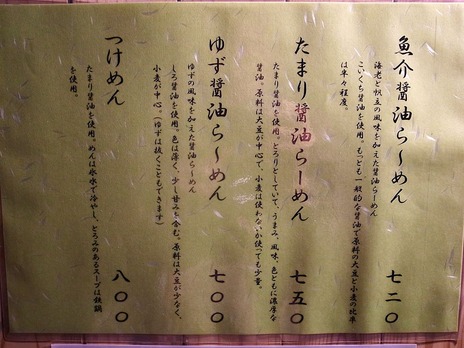 魚介醤油ら〜めん 七二〇
海老と帆立の風味を加えた醤油ら〜めん
こいくち醤油を使用。もっとも一般的な醤油で原料の大豆と小麦の比率
は半々程度。
たまり醤油らーめん 七五〇
たまり醤油を使用。とろりとしていて、うまみ、風味、色ともに濃厚な
醤油。原料は大豆が中心で、小麦は使わないか使っても少量。
ゆず醤油ら〜めん 七〇〇
ゆずの風味を加えた醤油ら〜めん
しろ醤油を使用。色は薄く、少し甘みを含む。原料は大豆が少なく、
小麦が中心。(ゆずは抜くこともできます)
つけめん 八〇〇
たまり醤油を使用。めんは氷水で冷やし、とろみのあるスープは鉄鍋
を使用。